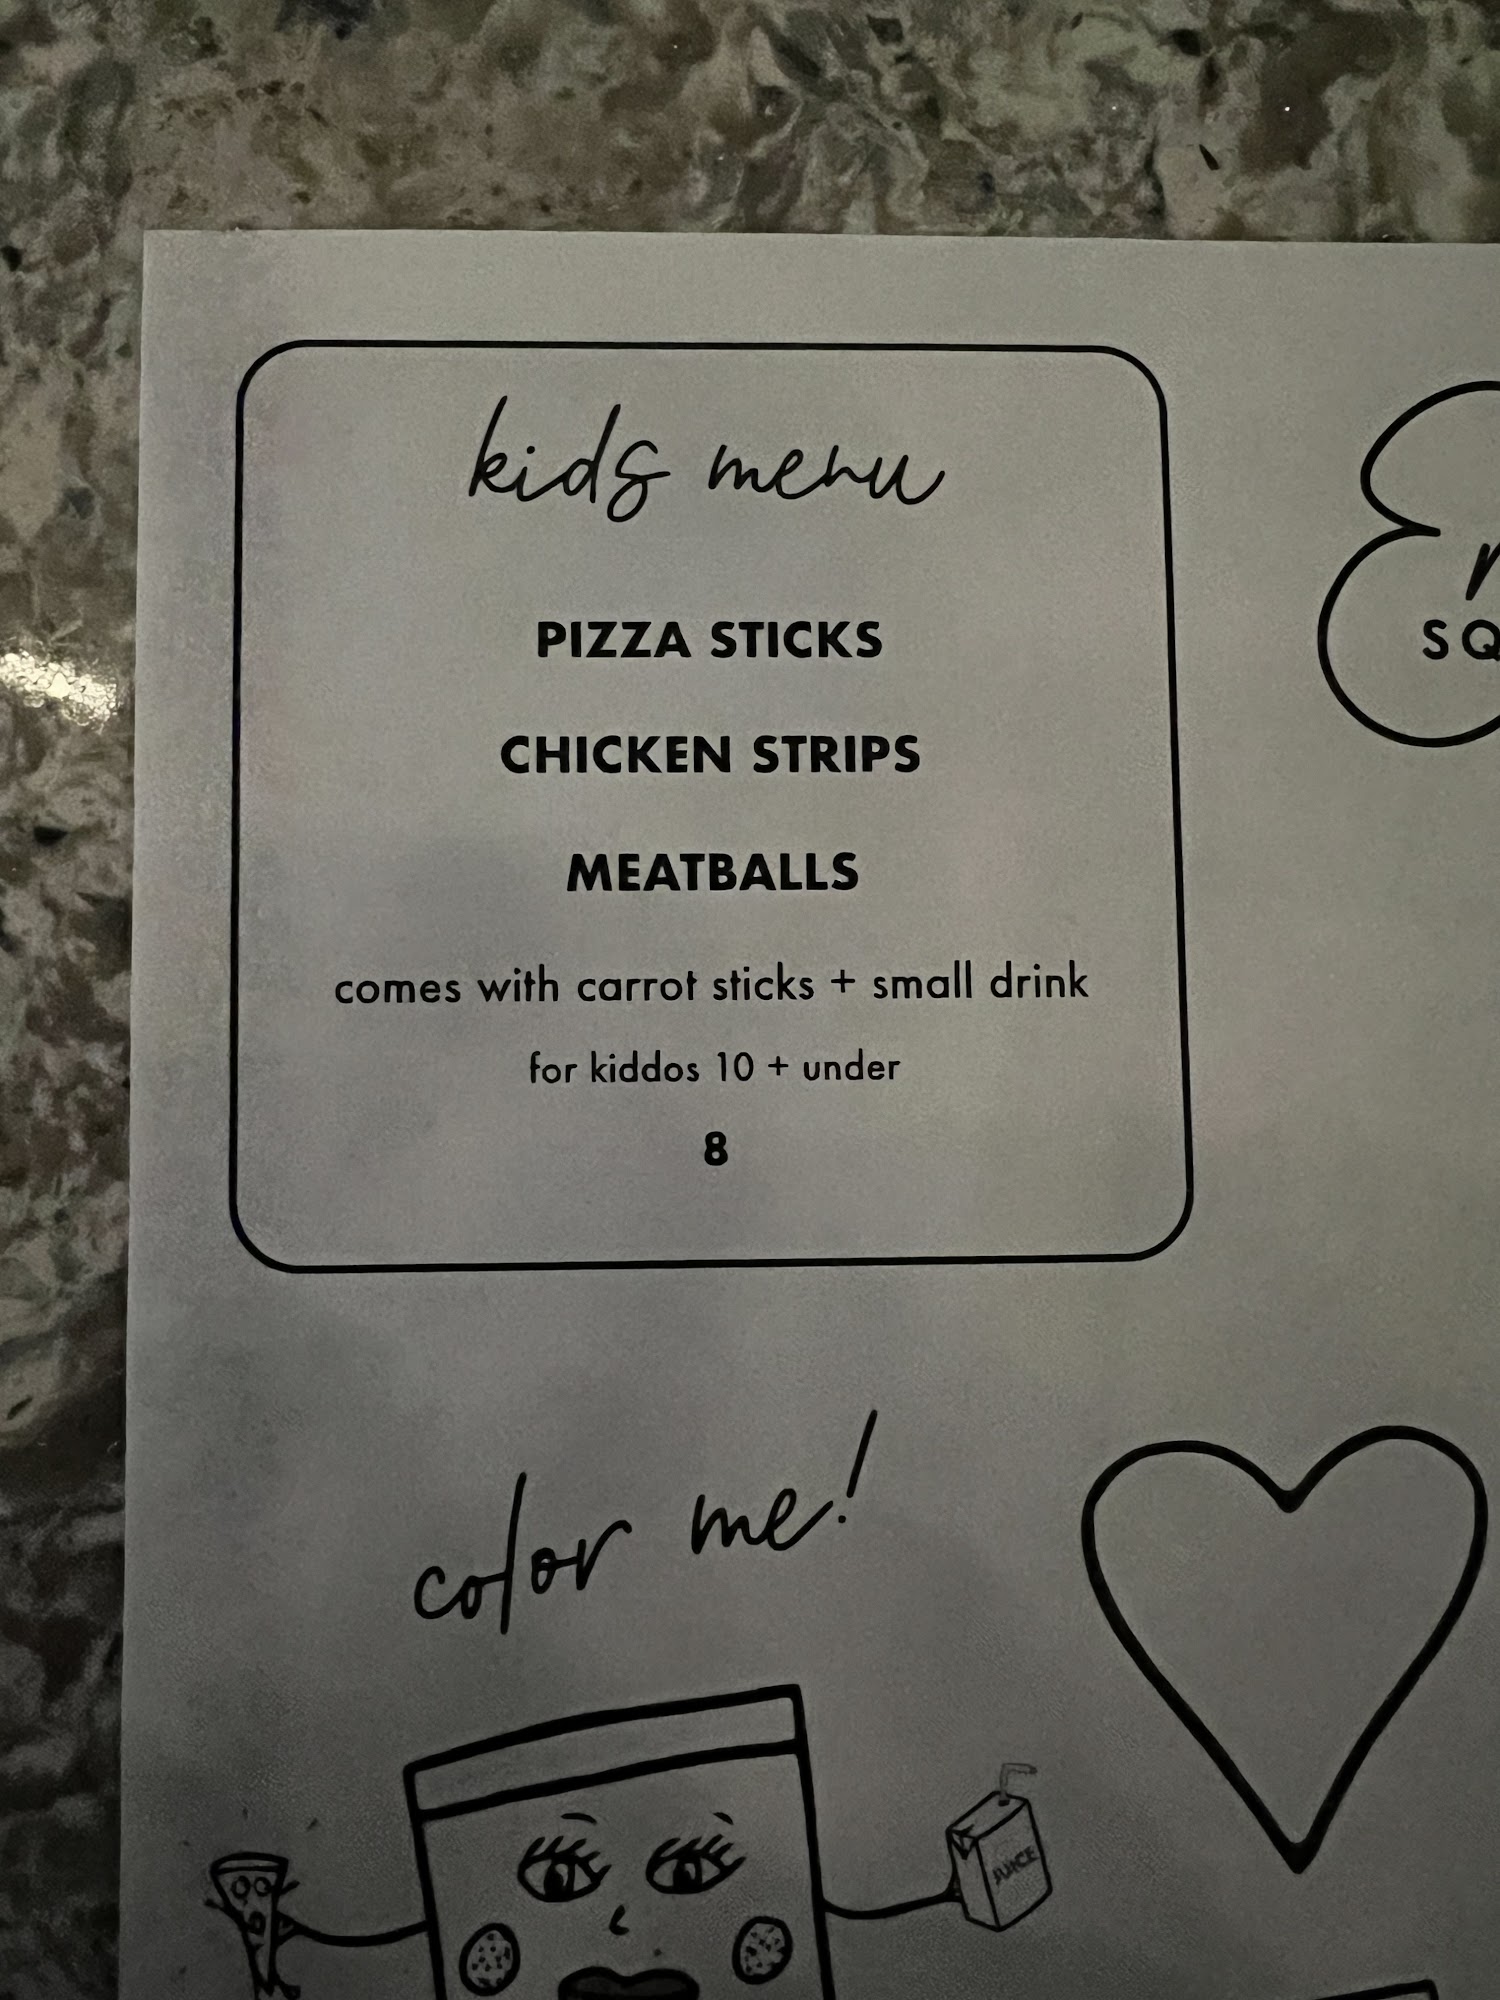 kids menu
PIZZA STICKS
CHICKEN STRIPS
MEATBALLS
comes with carrot sticks + small drink
for kiddos 10 + under
8
SQ
color me!
JUICE